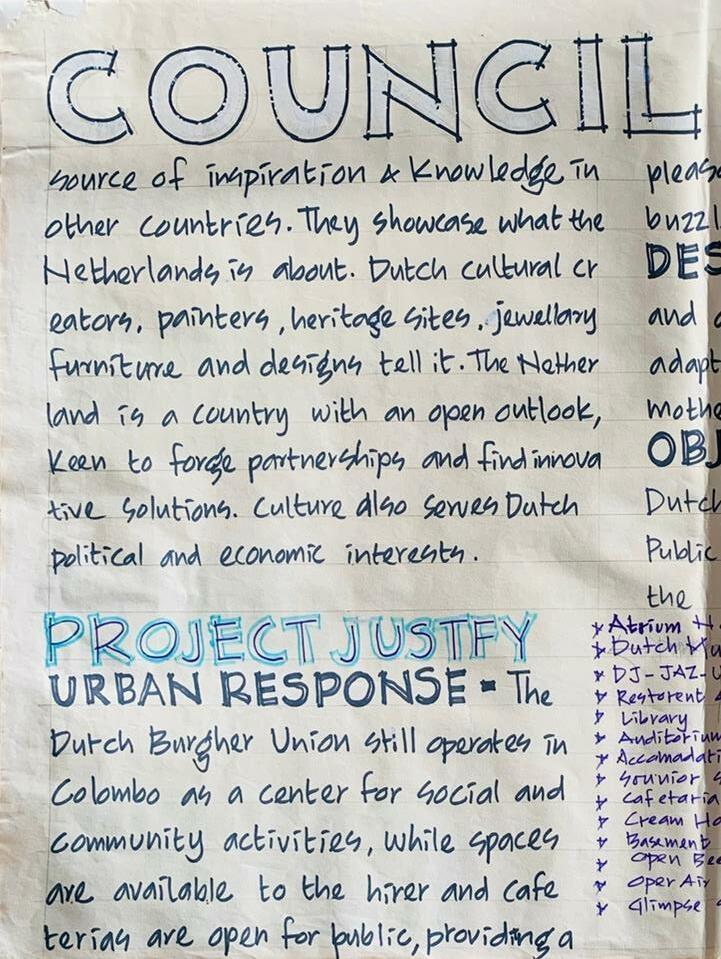 COUNCIL
source of inspiration & Knowledge in
other countries. They showcase what the
Netherlands is about. Dutch cultural cr
eators, painters, heritage sites, jewellary
furniture and designs tell it. The Nether
land is a country with an open outlook,
Keen to forge partnerships and find innova
tive solutions. Culture also serves Dutch
political and economic interests.
PROJECT JUSTFY
URBAN RESPONSE - The
Dutch Burgher Union still operates in
Colombo as a center for social and
community activities, while spaces
are available to the hirer and cafe
terias are open for public, providing a
pleas
buzzl
DES
and
adapt
mothe
OBJ
Dutch
Public
the
Atrium H
Dutch
DJ-JAZ-
Restorent
Library
Auditorium
Accamadati
Sounior S
Cafetaria
Cream Ho
Basement
Open Bee
Oper Air
Glimpse